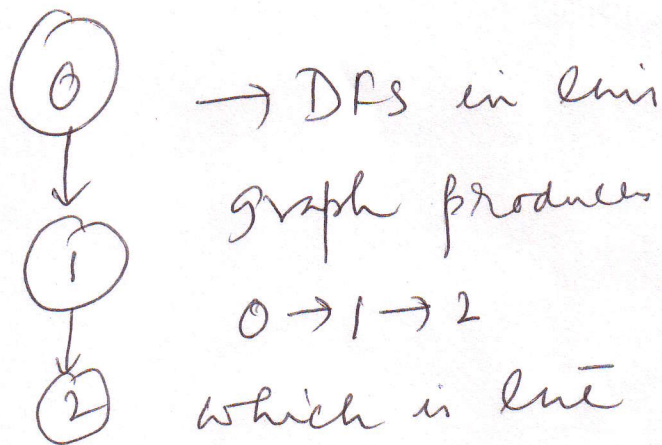 0
→ DFS in this
graph produces
1
0 → 1 → 2
2
which is